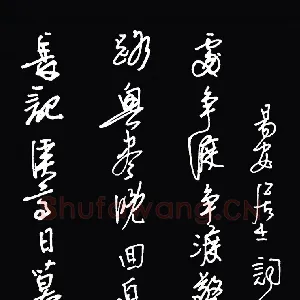 長記溪亭日暮
路興盡晚回舟
處爭渡爭渡驚
易安居士詞
Shufawang.CN